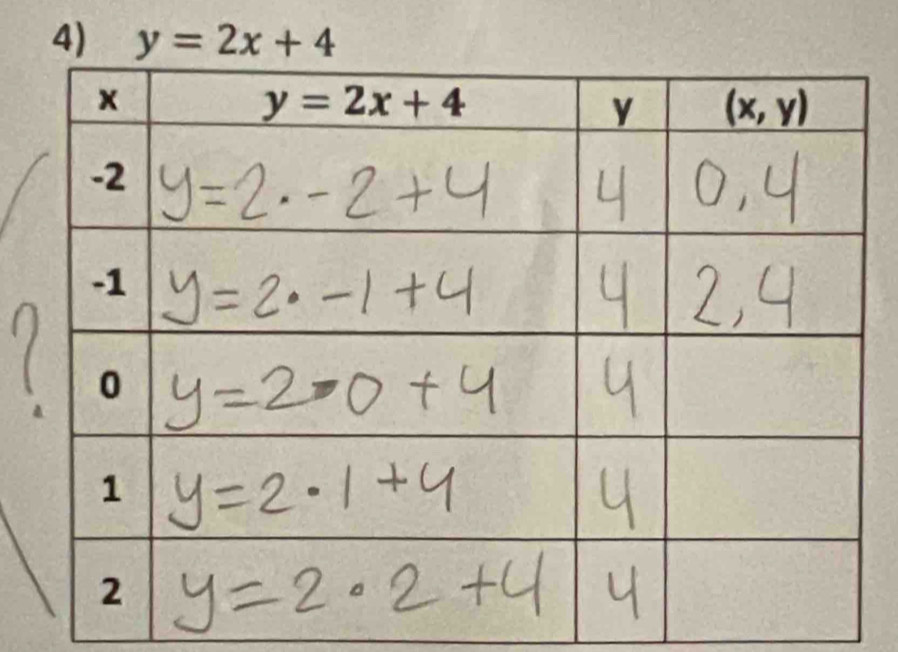 4) y = 2x + 4
x y = 2x + 4 y (x, y)
-2 y=2·-2+4 4 0,4
-1 y=2·-1+4 4 2,4
? 0 y=2·0+4 4
1 y=2·1+4 4
2 y=2·2+4 4